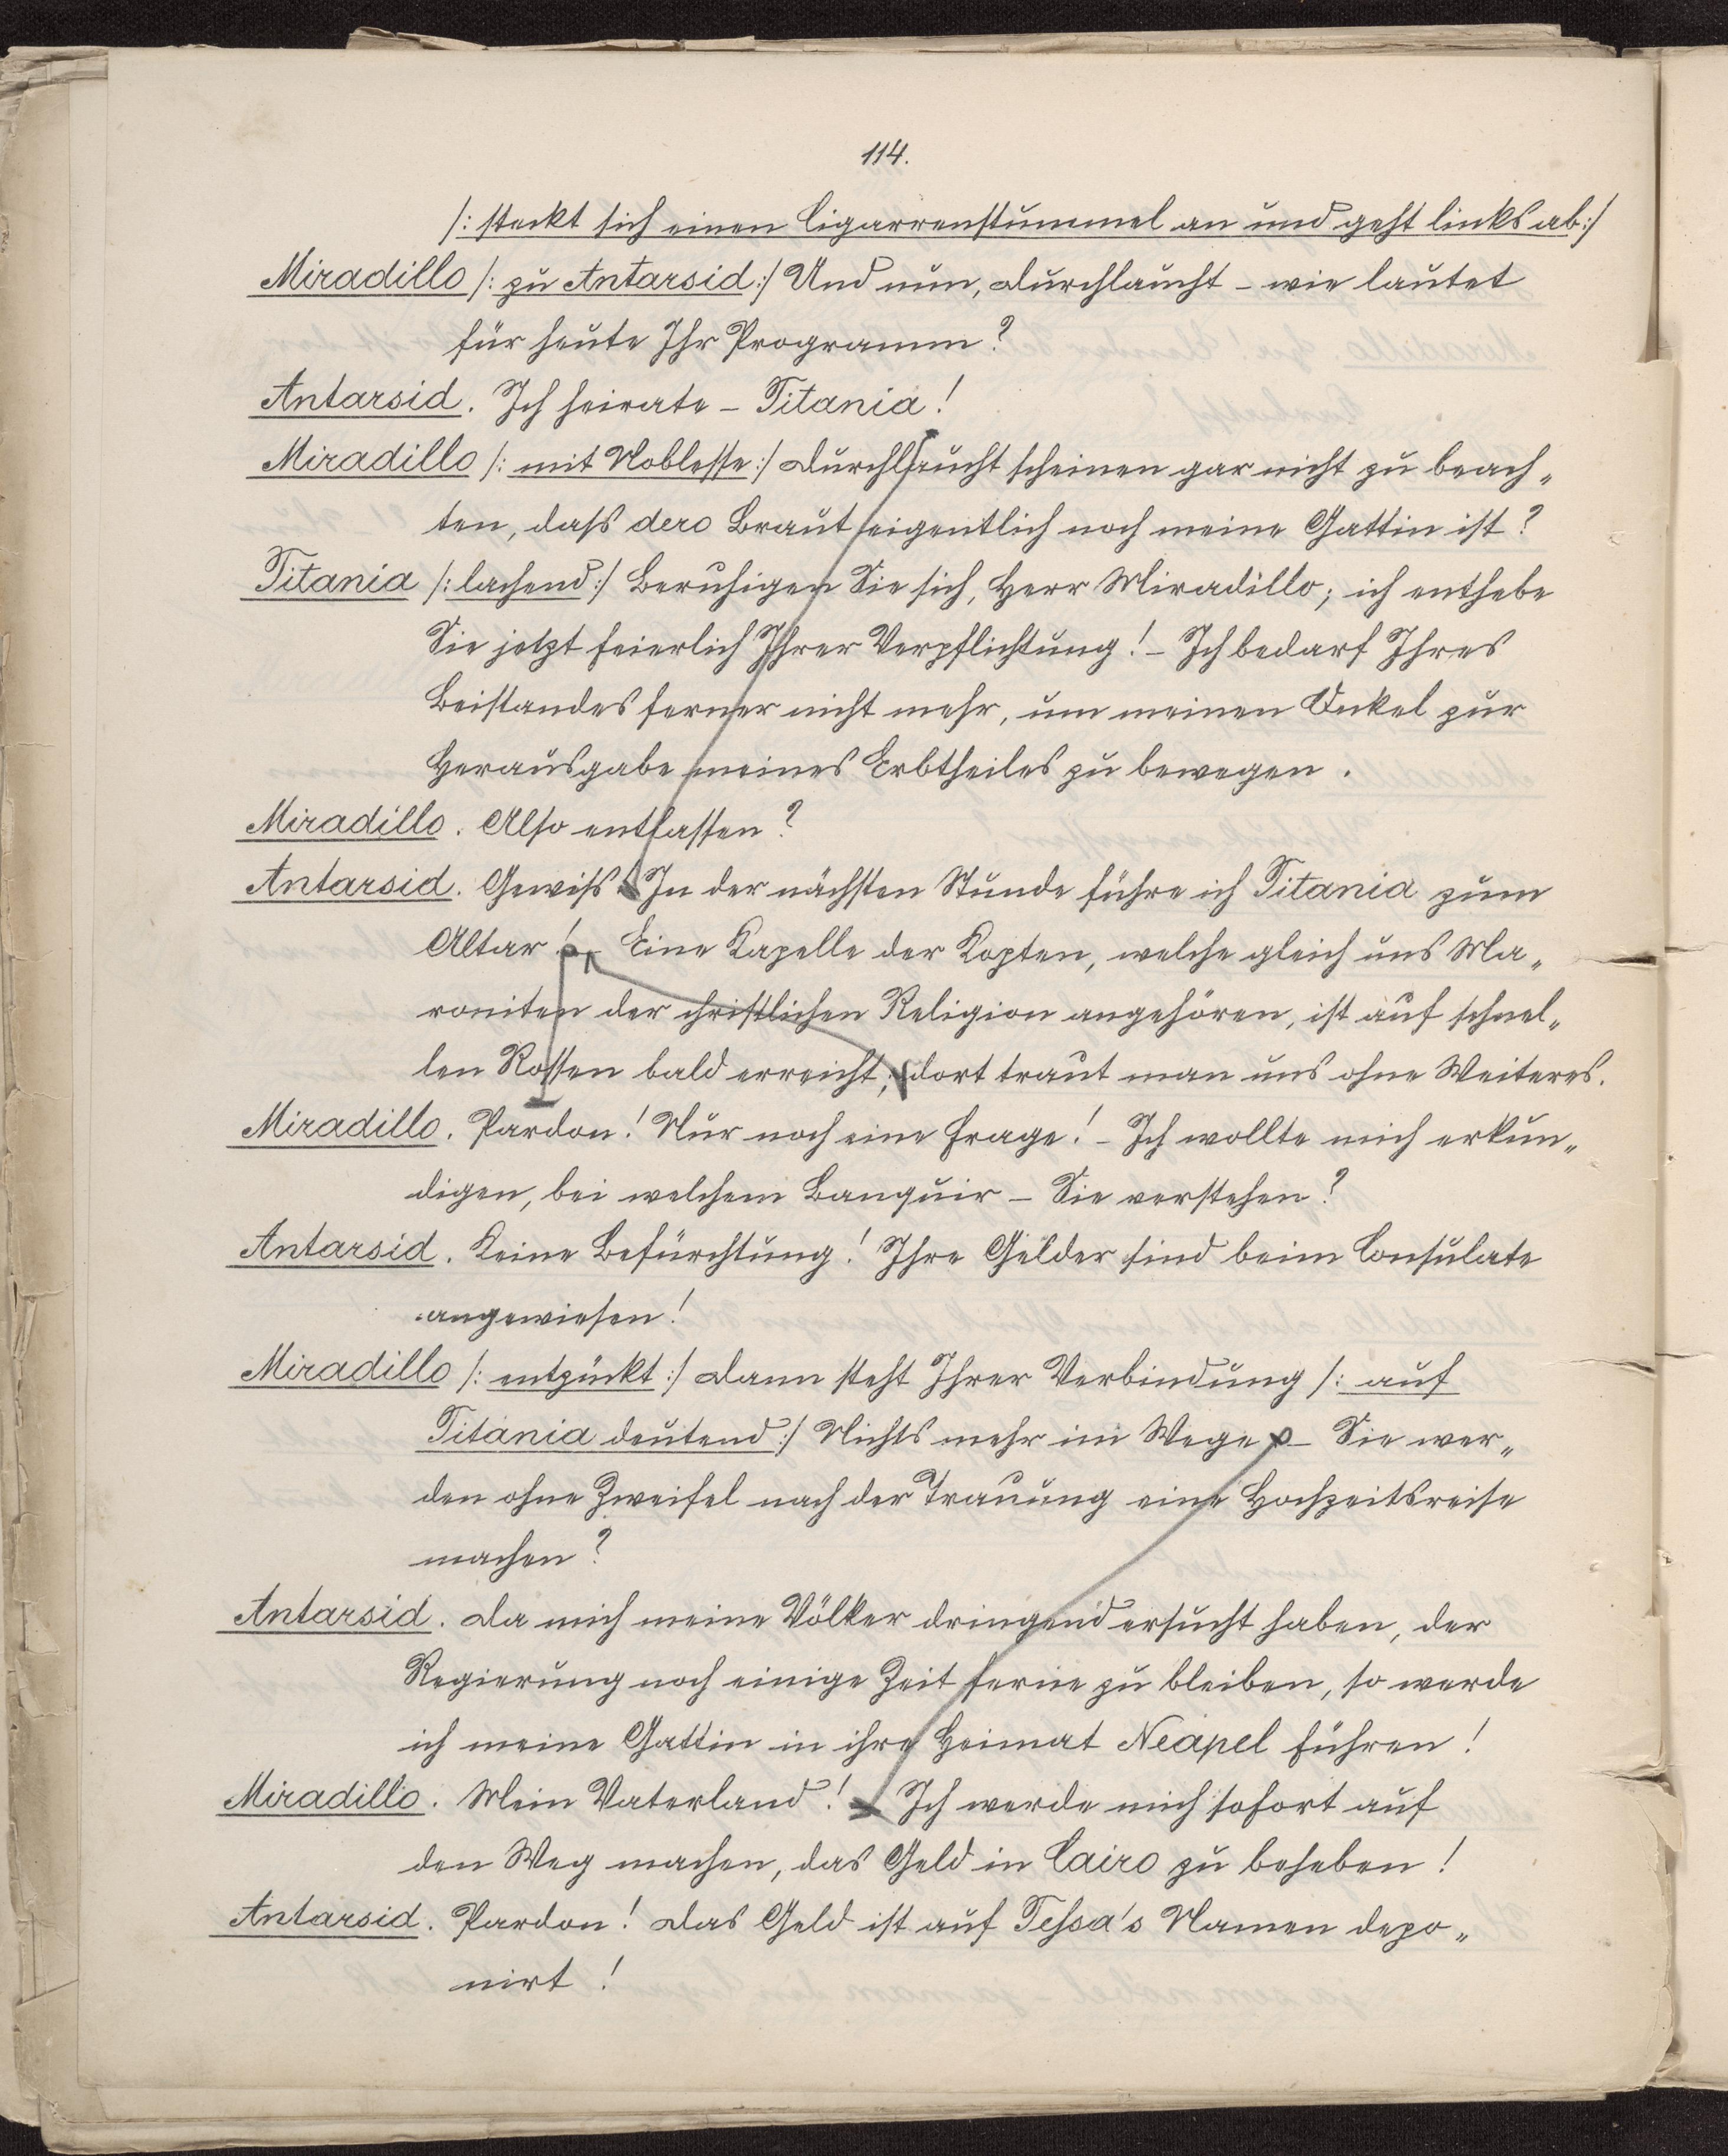 114.
/: steckt sich einen Cigarrenstummel an und geht links ab :/
Miradillo /: zu Antarsid :/ Und nun, Durchlaucht – wie lautet
für heute Ihr Programm?
Antarsid. Ich heirate – Titania!
Miradillo /: mit Noblesse :/ Durchlaucht scheinen gar nicht zu beach„
ten, daß dero Braut eigentlich noch meine Gattin ist?
Titania /: lachend :/ Beruhigen Sie sich, Herr Miradillo; ich enthebe
Sie jetzt feierlich Ihrer Verpflichtung! – Ich bedarf Ihres
Beistandes ferner nicht mehr, um meinen Onkel zur
Herausgabe meines Erbtheiles zu bewegen.
Miradillo. Also entlassen?
Antarsid. Gewiß! In der nächsten Stunde führe ich Titania zum
Altar! – Eine Kapelle der Kopten, welche gleich uns Ma„
roniten der christlichen Religion angehören, ist auf schnel„
len Rossen bald erreicht; dort traut man uns ohne Weiteres.
Miradillo. Pardon! Nur noch eine Frage! – Ich wollte mich erkun„
digen, bei welchem Banquir – Sie verstehen?
Antarsid. Keine Befürchtung! Ihre Gelder sind beim Consulate
angewiesen!
Miradillo /: entzückt :/ Dann steht Ihrer Verbindung /: auf
Titania deutend :/ Nichts mehr im Wege – Sie wer„
den ohne Zweifel nach der Trauung eine Hochzeitsreise
machen?
Antarsid. Da mich meine Völker dringend ersucht haben, der
Regierung noch einige Zeit ferne zu bleiben, so werde
ich meine Gattin in ihre Heimat Neapel führen!
Miradillo. Mein Vaterland! – Ich werde mich sofort auf
den Weg machen, das Geld in Cairo zu beheben!
Antarsid. Pardon! Das Geld ist auf Tessa's Namen depo„
nirt!